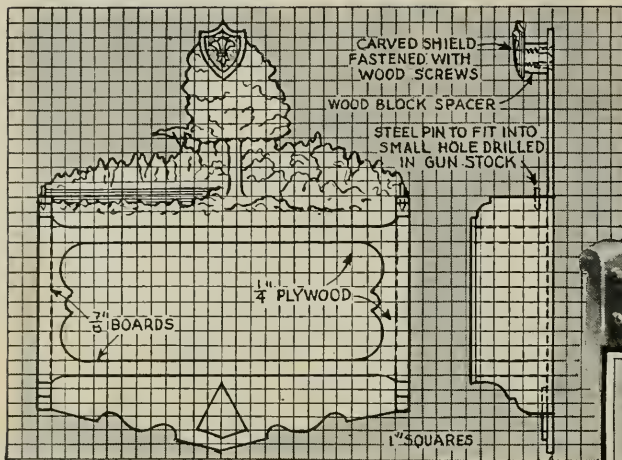 CARVED SHIELD
FASTENED WITH
WOOD SCREWS
WOOD BLOCK SPACER
STEEL PIN TO FIT INTO
SMALL HOLE DRILLED
IN GUN STOCK
1/4" PLYWOOD
7/8" BOARDS
1" SQUARES